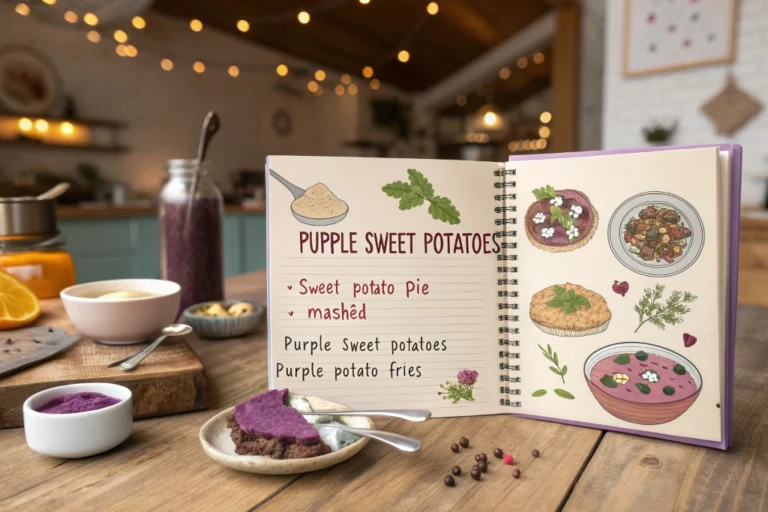 PUPPLE SWEET POTATOES
Sweet potato Pie
mashêd
Purple Sweet potatoes
Purple potato fries